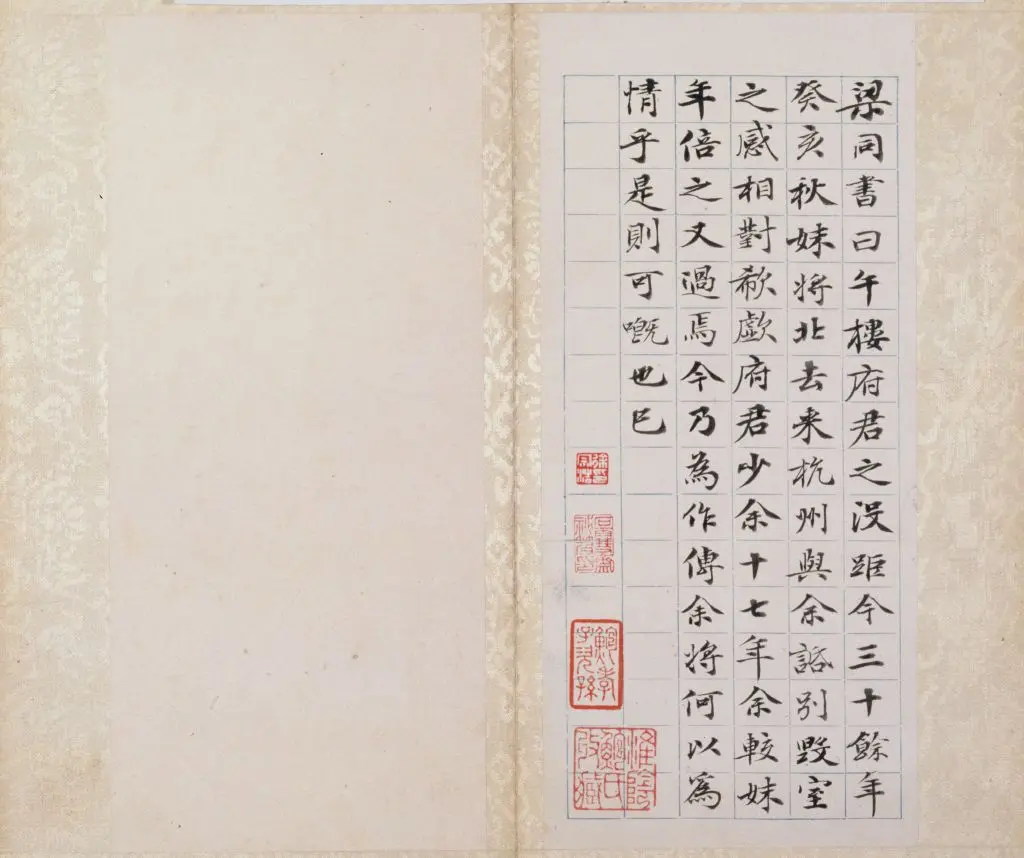 梁同書曰午樓府君之没距今三十餘年
癸亥秋妹将北去来杭州與余話别毁室
之感相對欷歔府君少余十七年余較妹
年倍之又過焉今乃為作傳余将何以爲
情乎是則可嘅也已
淮陰鮑氏收藏